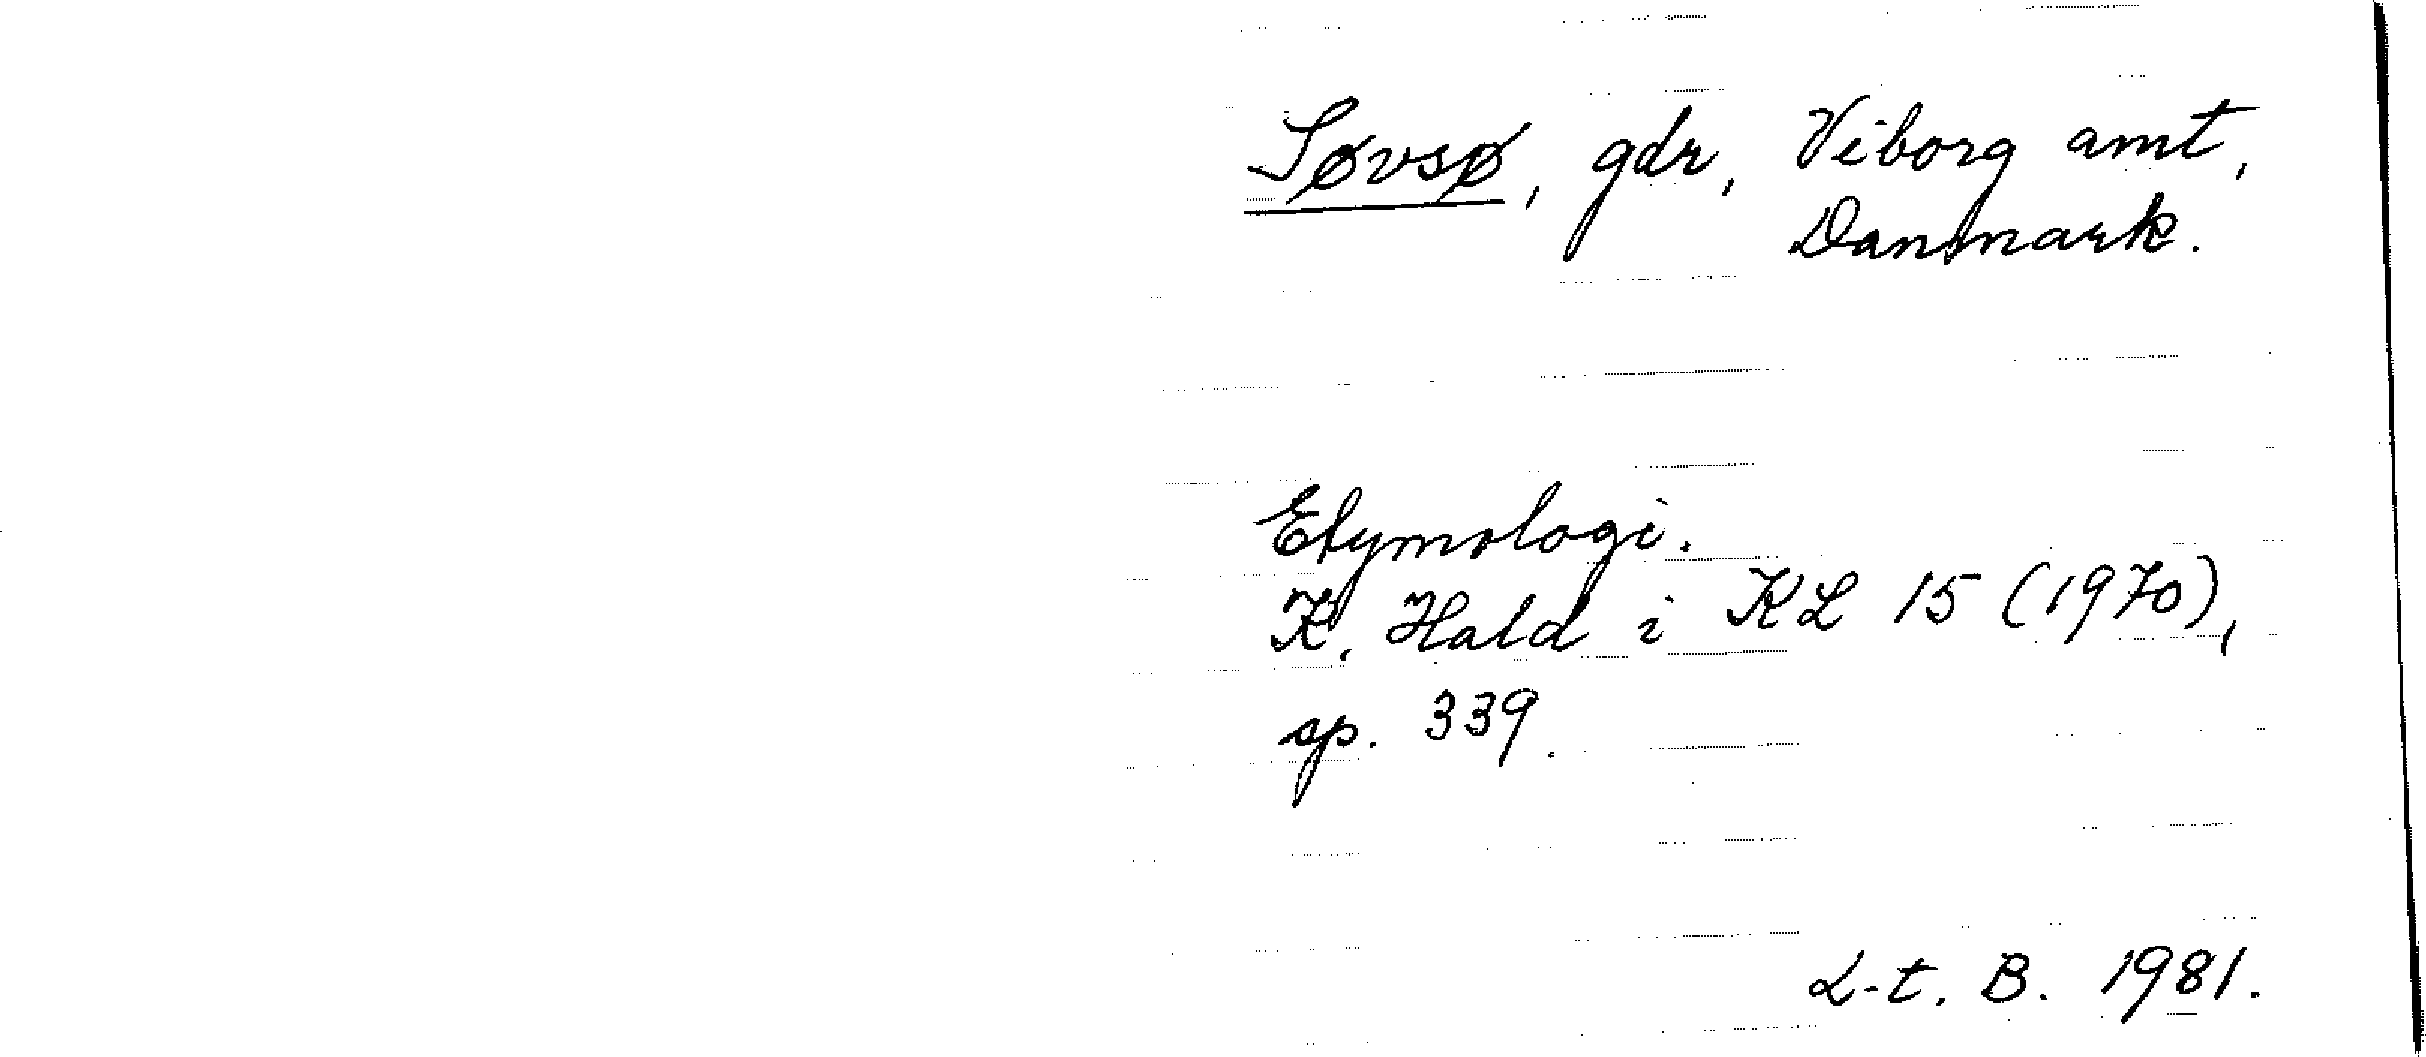 Søvsø, gdr, Viborg amt,
Danmark.
Etymologi.
K. Hald i KL 15 (1970),
sp. 339.
L-t. B. 1981.